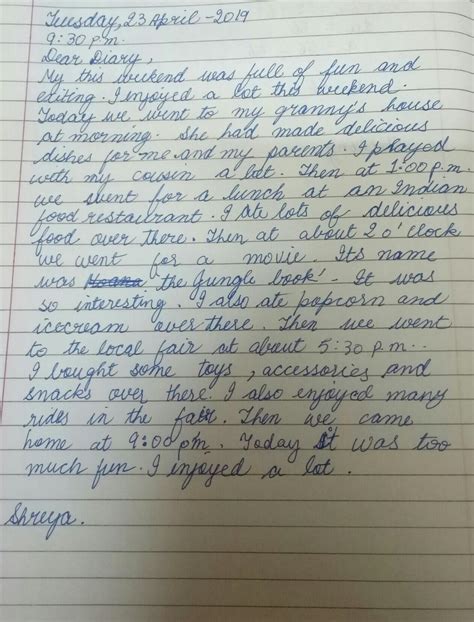 Tuesday, 23 April - 2019
9:30 p.m.
Dear Diary,
My this weekend was full of fun and
editing. I enjoyed a lot this weekend.
Today we went to my granny's house
at morning. She had made delicious
dishes for me and my parents. I played
with my cousin a lot. Then at 1:00 p.m.
we went for a lunch at an Indian
food restaurant. I ate lots of delicious
food over there. Then at about 2 o'clock
we went for a movie. Its name
was the Jungle book'. It was
so interesting. I also ate popcorn and
icecream over there. Then we went
to the local fair at about 5:30 p.m..
I bought some toys, accessories and
snacks over there. I also enjoyed many
rides in the fair. Then we came
home at 9:00 pm. Today it was too
much fun. I enjoyed a lot.
Shreya.